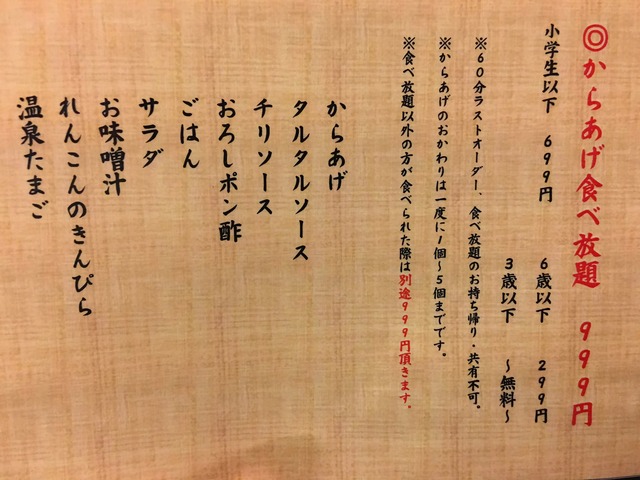 ◎からあげ食べ放題 999円
小学生以下 699円
6歳以下 299円
3歳以下 〜無料〜
※60分ラストオーダー、食べ放題のお持ち帰り・共有不可。
※からあげのおかわりは一度に1個〜5個までです。
※食べ放題以外の方が食べられた際は別途999円頂きます。
からあげ
タルタルソース
チリソース
おろしポン酢
ごはん
サラダ
お味噌汁
れんこんのきんぴら
温泉たまご